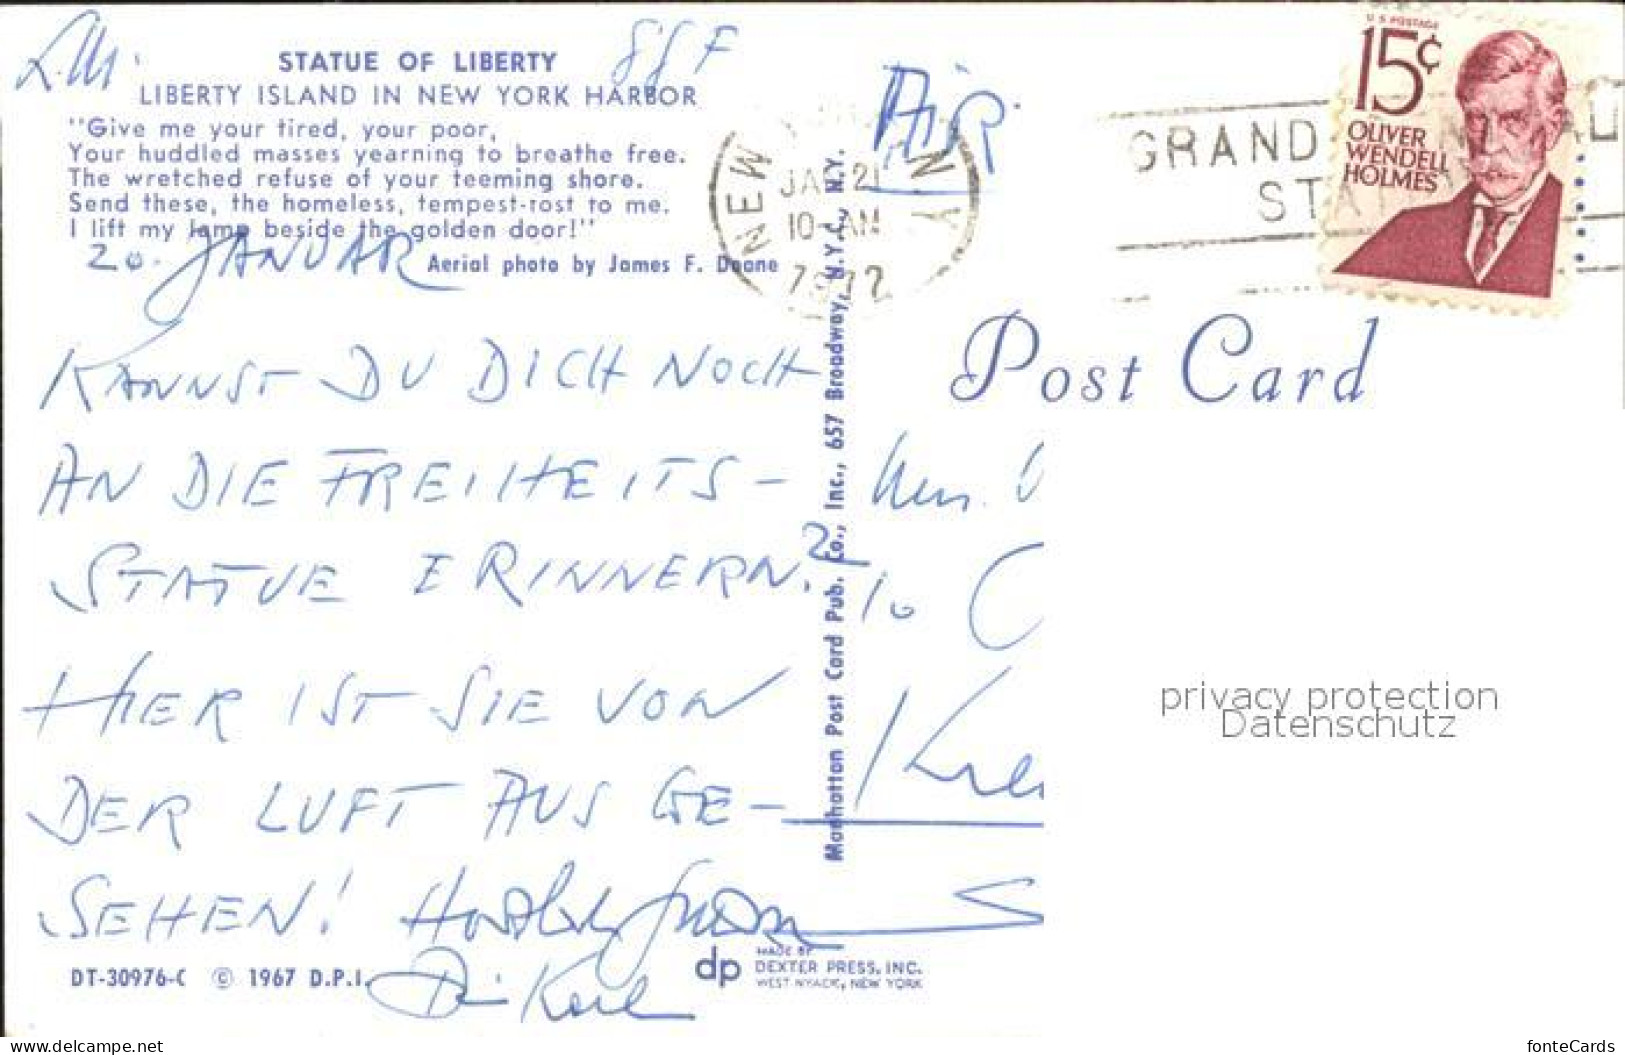 STATUE OF LIBERTY
LIBERTY ISLAND IN NEW YORK HARBOR
"Give me your tired, your poor,
Your huddled masses yearning to breathe free.
The wretched refuse of your teeming shore.
Send these, the homeless, tempest-tost to me.
I lift my lamp beside the golden door!"
Aerial photo by James F. Doane
20. JANUAR
KANNST DU DICH NOCH
AN DIE FREIHEITS-
STATUE ERINNERN?
HIER IST SIE VON
DER LUFT AUS GE-
SEHEN!
Dein Karl
DT-30976-C © 1967 D.P.I.
dp
MADE BY
DEXTER PRESS, INC.
WEST NYACK, NEW YORK
Manhattan Post Card Pub. Co., Inc., 657 Broadway, N.Y.C., N.Y.
AiR
NEW
JAN 21
10-AM
N Y
GRAND
STA
U.S. POSTAGE
15¢
OLIVER
WENDELL
HOLMES
Post Card
privacy protection
Datenschutz
www.delcampe.net
fonteCards